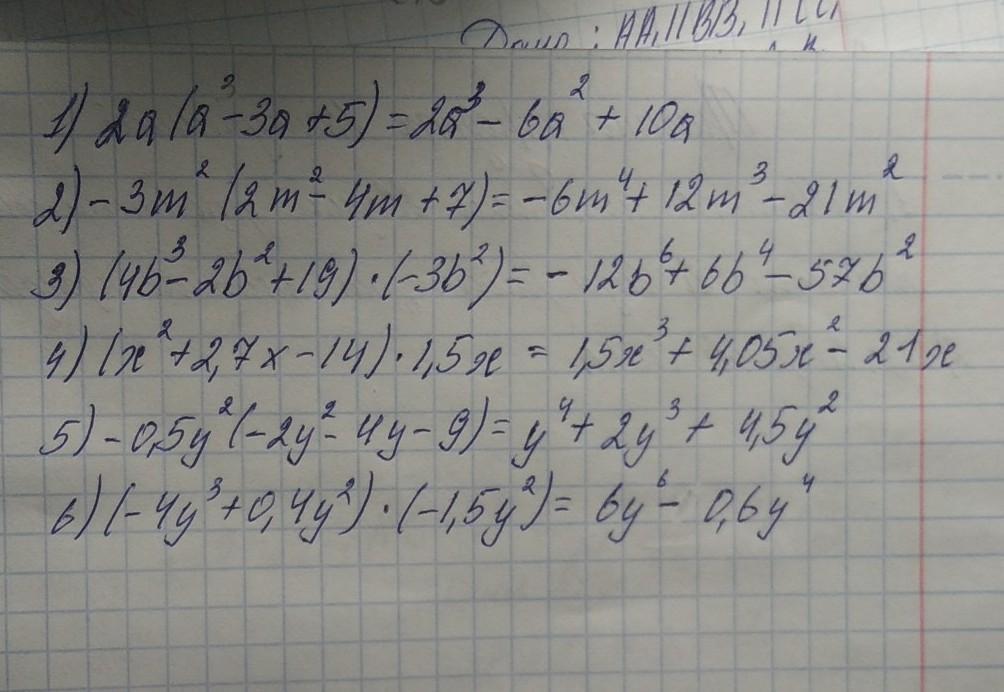 Дано: AA₁ || BB₁ || CC₁
1) 2a(a³ - 3a + 5) = 2a³ - 6a² + 10a
2) - 3m² (2m² - 4m + 7) = - 6m⁴ + 12m³ - 21m²
3) (4b³ - 2b² + 19) · (-3b²) = - 12b⁶ + 6b⁴ - 57b²
4) (x² + 2,7x - 14) · 1,5x = 1,5x³ + 4,05x² - 21x
5) - 0,5y² (-2y² - 4y - 9) = y⁴ + 2y³ + 4,5y²
6) (-4y³ + 0,4y²) · (-1,5y²) = 6y⁶ - 0,6y⁴